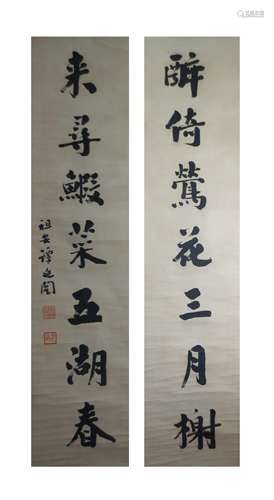 醉倚鶯花三月榭
来尋鰕菜五湖春
祖安譚延闓